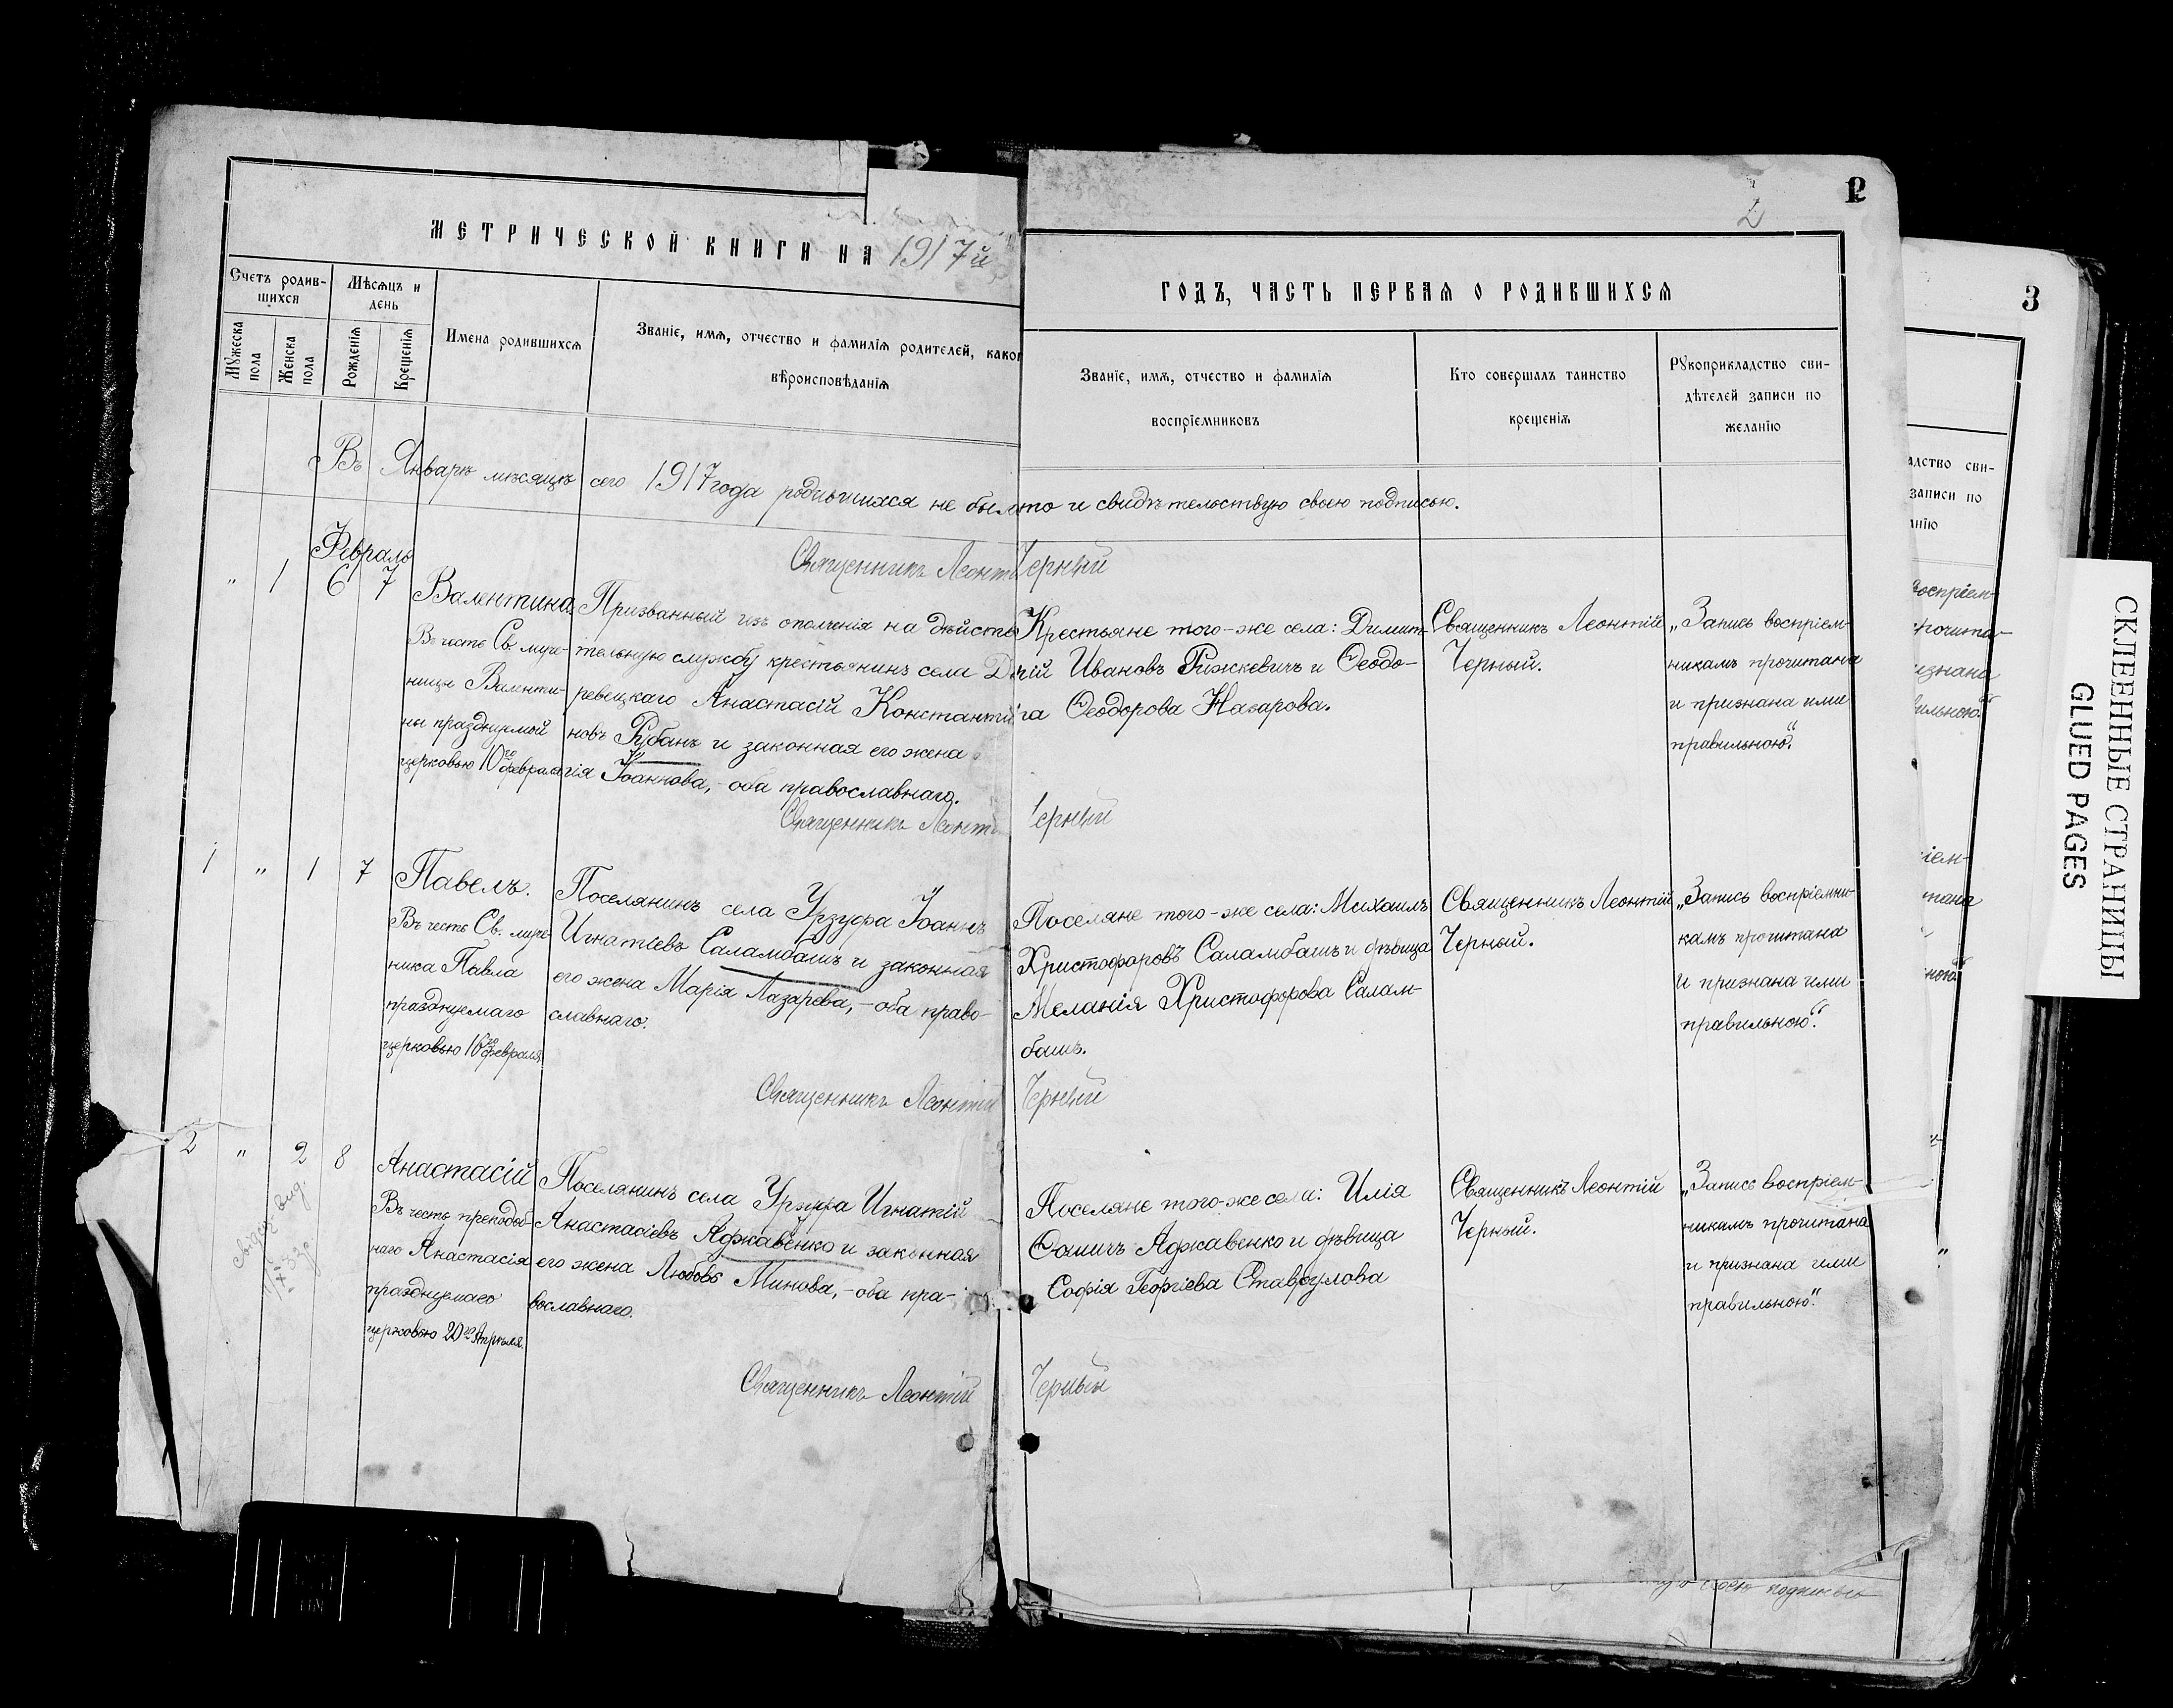 МЕТРИЧЕСКОЙ КНИГИ НА 1917й
ГОДЪ, ЧАСТЬ ПЕРВАЯ О РОДИВШИХСЯ
2
3
Счетъ родив-
шихся
Мѣсяцъ и
день
Мужеска
пола
Женска
пола
Рожденія
Крещенія
Имена родившихся
Званіе, имя, отчество и фамилія родителей, каког
вѣроисповѣданія
Званіе, имя, отчество и фамилія
воспріемниковъ
Кто совершалъ таинство
крещенія
Рукоприкладство сви-
дѣтелей записи по
желанію
Въ Январѣ мѣсяцѣ сего 1917 года родившихся не было и свидѣтельствую свою подписью.
Священникъ Леонт Черный
Февраль
" 1 6 7
Валентина.
Въ честь Св. муче-
ницы Валенти-
ны празднуемой
церковью 10го февраля
Призванный изъ ополченія на дѣйств
тельную службу крестьянинъ села
ревецкаго Анастасій Константи
новъ Рубанъ и законная его жена
гія Іоаннова, - оба православнаго.
Крестьяне того-же села: Димит-
рій Ивановъ Рижкевичъ и Ѳеодо-
ра Ѳеодорова Назарова.
Священникъ Леонтій
Черный.
"Запись воспріем-
никамъ прочитана
и признана ими
правильною".
Священникъ Леонт Черный
1 " 1 7
Павелъ.
Въ честь Св. муче-
ника Павла
празднуемаго
церковью 16го февраля
Поселянинъ села Урзуфа Іоаннъ
Игнатіевъ Саламбашъ и законная
его жена Марія Лазарева, - оба право-
славнаго.
Поселяне того-же села: Михаилъ
Христофоровъ Саламбашъ и дѣвица
Меланія Христофорова Салам-
башъ.
Священникъ Леонтій
Черный.
"Запись воспріемни-
камъ прочитана
и признана ими
правильною".
Священникъ Леонтій Черный
2 " 2 8
Анастасій
Въ честь преподоб-
наго Анастасія
празднуемаго
церковью 20го Апрѣля.
Поселянинъ села Урзуфа Игнатій
Анастасіевъ Аджавенко и законная
его жена Любовь Минова, - оба пра-
вославнаго.
Поселяне того-же села: Илія
Ѳомичъ Аджавенко и дѣвица
Софія Георгіева Ставрулова
Священникъ Леонтій
Черный.
"Запись воспріем-
никамъ прочитана
и признана ими
правильною".
Священникъ Леонтій Черный
СКЛЕЕННЫЕ СТРАНИЦЫ
GLUED PAGES